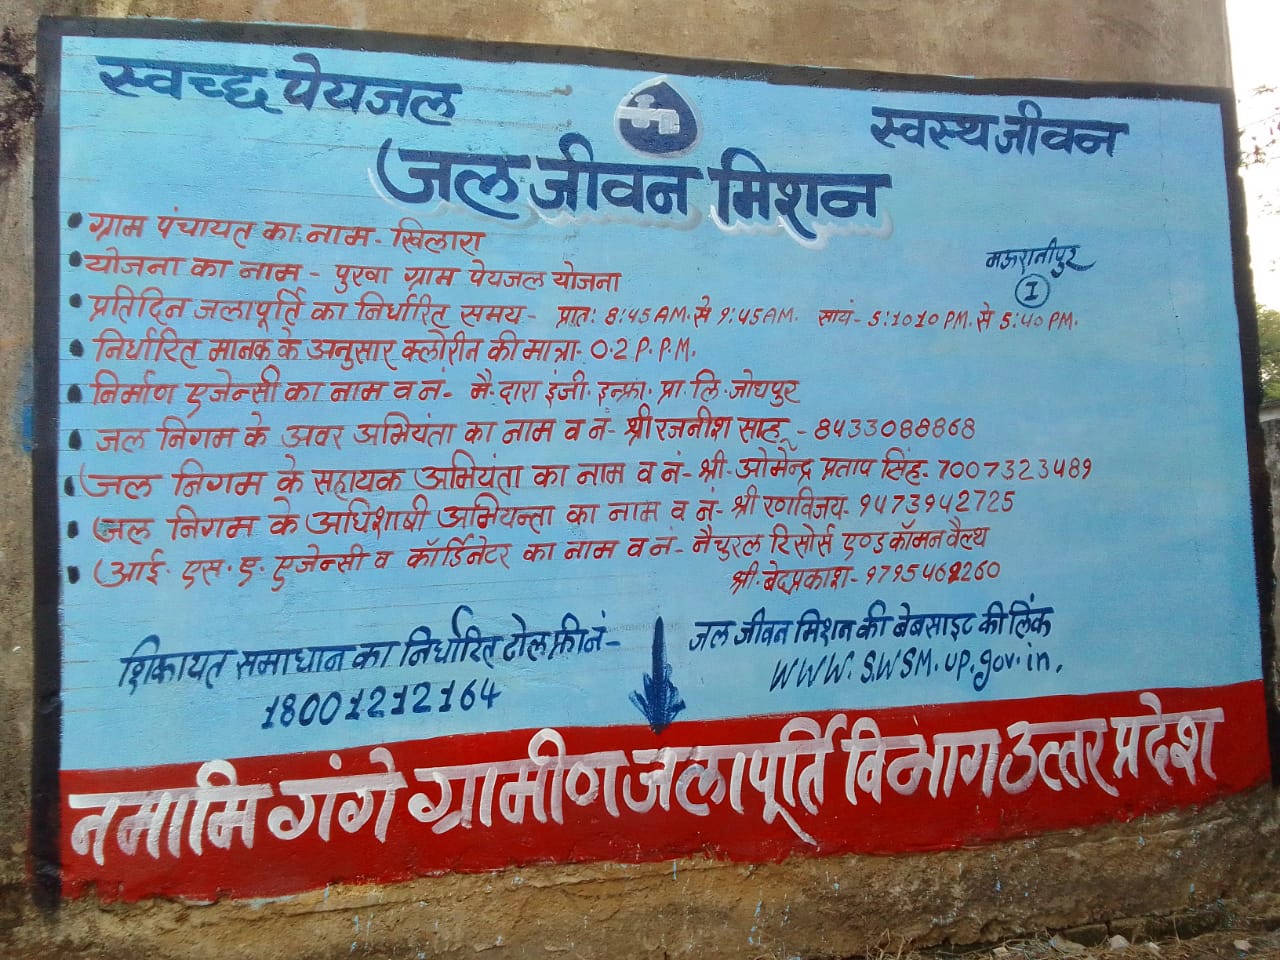 स्वच्छ पेयजल
स्वस्थ जीवन
जल जीवन मिशन
• ग्राम पंचायत का नाम - खिलारा
• योजना का नाम - पुरवा ग्राम पेयजल योजना
मऊरानीपुर
I
• प्रतिदिन जलापूर्ति का निर्धारित समय - प्रातः 8:45 A.M. से 9:45 A.M. सायं - 5:1010 P.M. से 5:40 P.M.
• निर्धारित मानक के अनुसार क्लोरीन की मात्रा - 0.2 P.P.M.
• निर्माण एजेन्सी का नाम व नं - मै. दारा इंजी. इन्फ्रा. प्रा. लि. जोधपुर
• जल निगम के अवर अभियंता का नाम व नं - श्री रजनीश साहू - 8433088868
• जल निगम के सहायक अभियंता का नाम व नं - श्री - ओमेन्द्र प्रताप सिंह - 7007323489
• जल निगम के अधिशाषी अभियन्ता का नाम व नं - श्री रणविजय - 9473942725
• आई. एस. ए. एजेन्सी व कॉर्डिनेटर का नाम व नं - नैचुरल रिसोर्स एण्ड कॉमन वैल्थ
श्री. बेदप्रकाश - 9795462260
शिकायत समाधान का निर्धारित टोल फ्री नं -
18001212164
जल जीवन मिशन की बेबसाइट की लिंक
WWW.SWSM.UP.gov.in.
नमामि गंगे ग्रामीण जलापूर्ति विभाग उत्तर प्रदेश